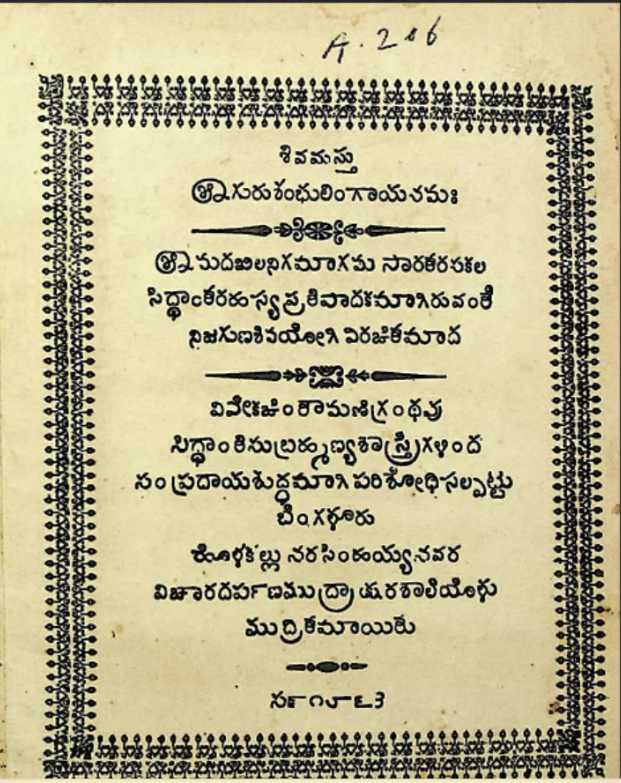 A. 206
ಶಿವಮಸ್ತು
ಶ್ರೀಗುರುಶಂಭುಲಿಂಗಾಯನಮಃ
ಶ್ರೀಮದಖಿಲನಿಗಮಾಗಮ ಸಾರತರಸಕಲ
ಸಿದ್ಧಾಂತರಹಸ್ಯಪ್ರತಿಪಾದಕಮಾಗಿರುವಂತೆ
ನಿಜಗುಣಶಿವಯೋಗಿ ವಿರಚಿತಮಾದ
ವಿವೇಕಚಿಂತಾಮಣಿಗ್ರಂಥವು
ಸಿದ್ಧಾಂತಿಸುಬ್ರಹ್ಮಣ್ಯಶಾಸ್ತ್ರಿಗಳಿಂದ
ಸಂಪ್ರದಾಯಶುದ್ಧಮಾಗಿ ಪರಿಶೋಧಿಸಲ್ಪಟ್ಟು
ಬೆಂಗಳೂರು
ಹೊಳಕಲ್ಲು ನರಸಿಂಹಯ್ಯನವರ
ವಿಚಾರದರ್ಪಣಮುದ್ರಾಕ್ಷರಶಾಲೆಯೊಳು
ಮುದ್ರಿತಮಾಯಿತು
ಸ೯ ೧೮೬೩